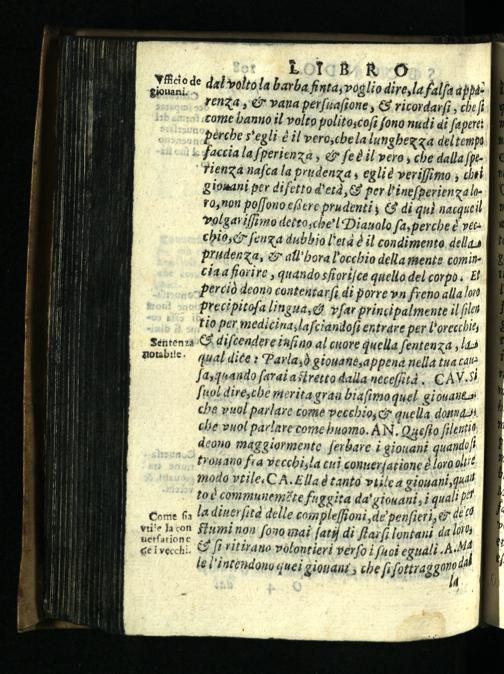 LIBRO
Vfficio de
giouani.
dal volto la barba finta, voglio dire, la falsa appa-
renza, & vana persuasione, & ricordarsi, che si
come hanno il volto polito, così sono nudi di sapere:
perche s'egli è il vero, che la lunghezza del tempo
faccia la sperienza, & se è il vero, che dalla spe-
rienza nasca la prudenza, egli è verissimo, che i
giouani per difetto d'età, & per l'inesperienza lo-
ro, non possono essere prudenti; & di quì nacque il
volgarissimo detto, che'l Diauolo sa, perche è vec-
chio, & senza dubbio l'età è il condimento della
prudenza, & all'hora l'occhio della mente comin-
cia a fiorire, quando sfiorisce quello del corpo. Et
perciò deono contentarsi di porre vn freno alla loro
precipitosa lingua, & vsar principalmente il silen
tio per medicina, lasciandosi entrare per l'orecchie,
Sentenza
notabile.
& discendere insino al cuore quella sentenza, la
qual dice: Parla, ò giouane, appena nella tua cau-
sa, quando sarai astretto dalla necessità. CAV. Si
suol dire, che merita gran biasimo quel giouane,
che vuol parlare come vecchio, & quella donna,
che vuol parlare come huomo. AN. Questo silentio
deono maggiormente serbare i giouani quando si
trouano fra vecchi, la cui conuersatione è loro oltre
modo vtile. CA. Ella è tanto vtile a giouani, quan
to è communemēte fuggita da'giouani, i quali per
Come sia
vtile la con
uersatione
de i vecchi.
la diuersità delle complessioni, de'pensieri, & de'co
stumi non sono mai satij di starsi lontani da loro,
& si ritirano volontieri verso i suoi eguali. A. Ma
le l'intendono quei giouani, che si sottraggono dal
la